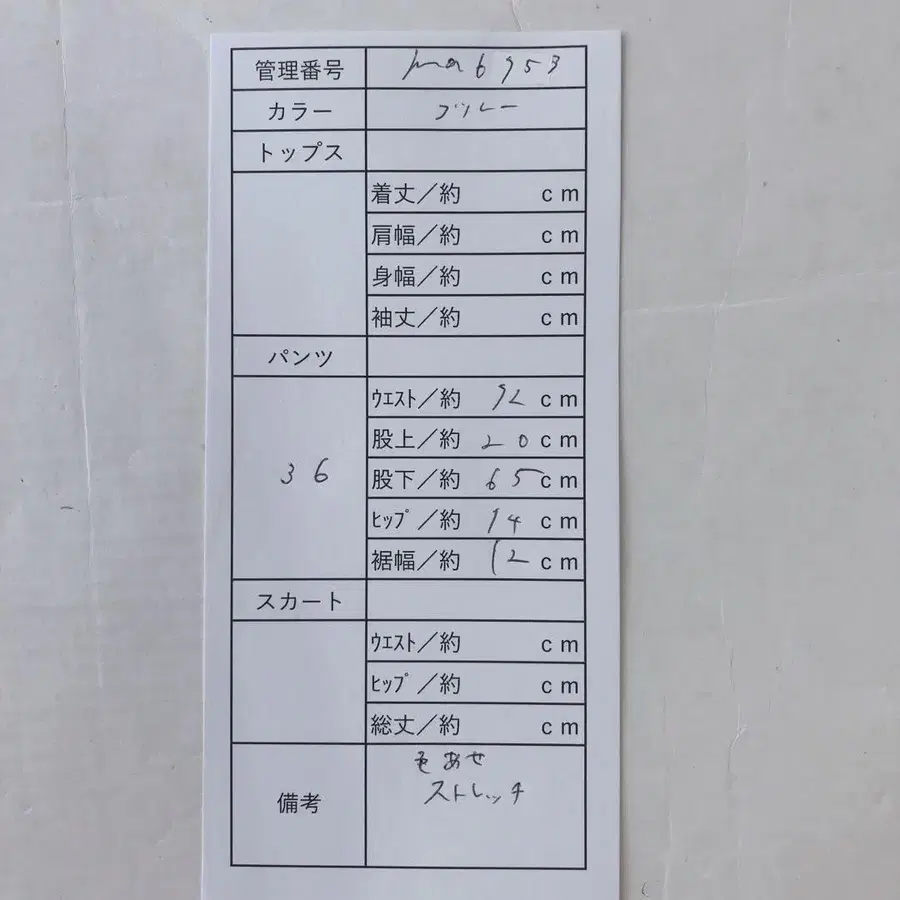 管理番号 ma6953
カラー ブルー
トップス
着丈／約 cm
肩幅／約 cm
身幅／約 cm
袖丈／約 cm
パンツ
36
ウエスト／約 92 cm
股上／約 20 cm
股下／約 65 cm
ヒップ／約 cm
裾幅／約 12 cm
スカート
ウエスト／約 cm
ヒップ／約 cm
総丈／約 cm
備考
色あせ
ストレッチ